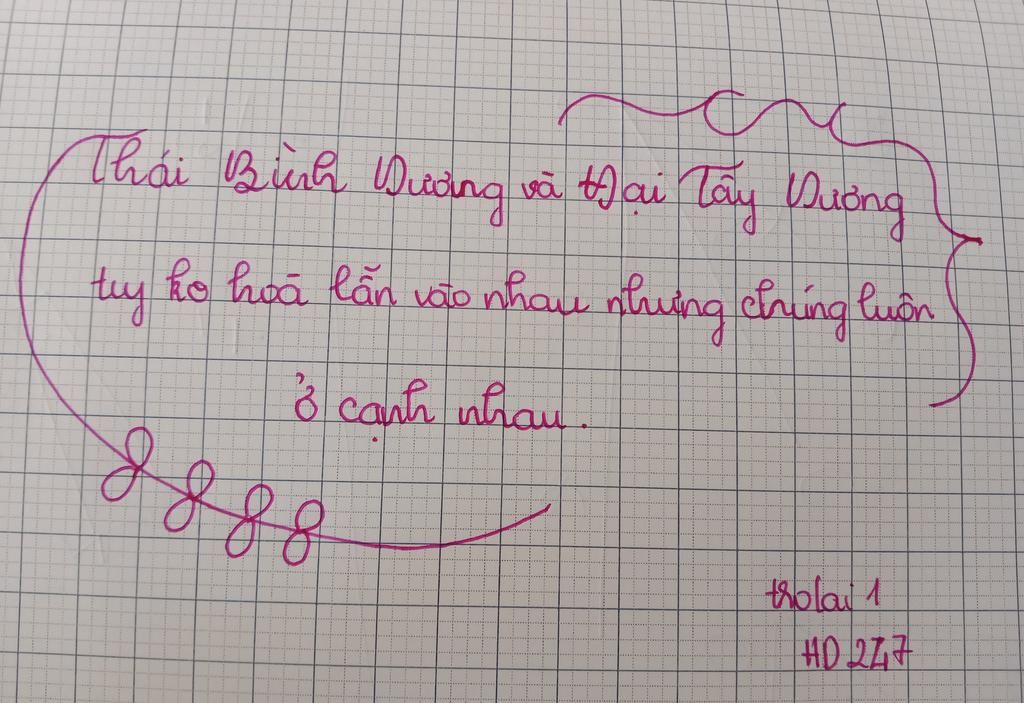 Thái Bình Dương và Đại Tây Dương
tuy ko hoà lẫn vào nhau nhưng chúng luôn
ở cạnh nhau.
trolai 1
HD 247